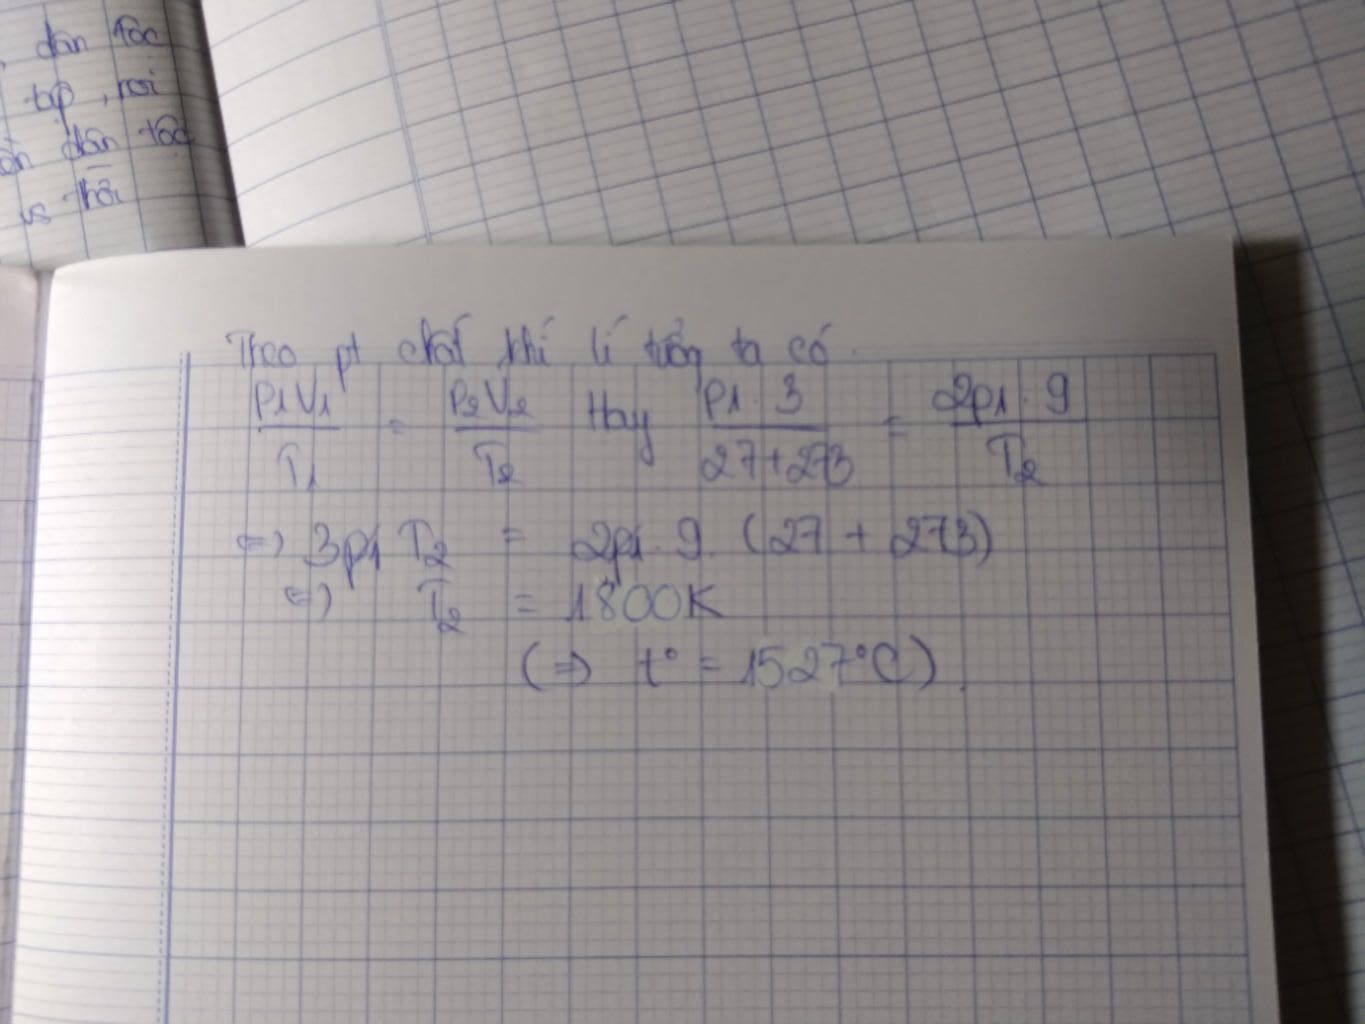 dân tộc
tập, rơi
dân tộc
vs thời
Theo pt chất khí lí tưởng ta có
p₁V₁/T₁ = p₂V₂/T₂ Hay p₁.3/27+273 = 2p₁.9/T₂
⇔ 3p₁T₂ = 2p₁.9.(27+273)
⇔ T₂ = 1800K
(⇒ t° = 1527°C).